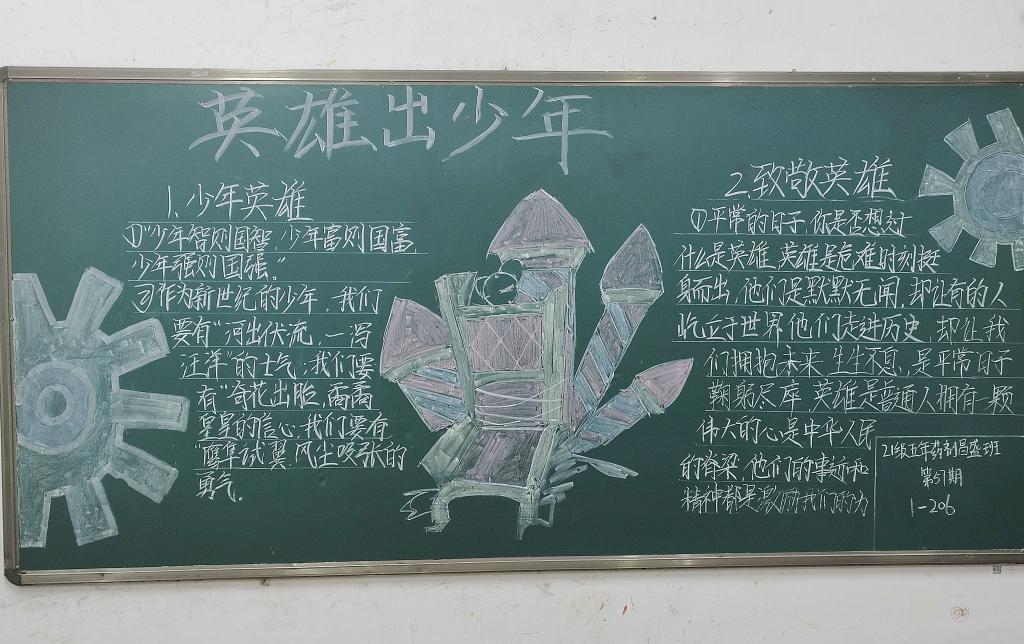 英雄出少年
1、少年英雄
①“少年智则国智,少年富则国富,
少年强则国强。”
②作为新世纪的少年,我们
要有“河出伏流,一泻
汪洋”的士气;我们要
有“奇花出胎,矞矞
皇皇的信心;我们要有
“鹰隼试翼,风尘吸张的
勇气。
2.致敬英雄
①平常的日子,你是否想过
什么是英雄,英雄是危难时刻挺
身而出,他们是默默无闻,却让有的人
屹立于世界他们走进历史,却让我
们拥抱未来,生生不息,是平常日子
鞠躬尽瘁,英雄是普通人拥有一颗
伟大的心是中华人民
的脊梁,他们的事迹和
精神都是激励我们的力
21级五年药剂昌盛班
第57期
1-206